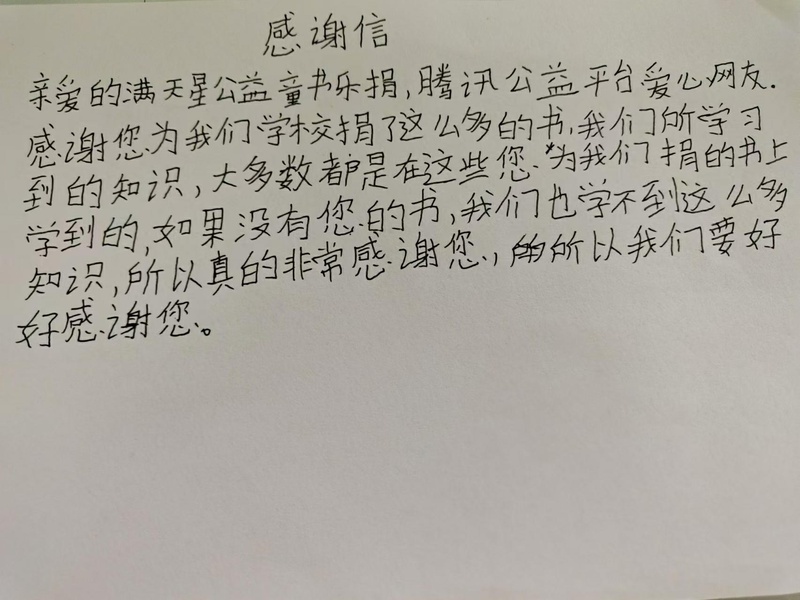 感谢信
亲爱的满天星公益童书乐捐,腾讯公益平台爱心网友.
感谢您为我们学校捐了这么多的书,我们所学习
到的知识,大多数都是在这些您为我们捐的书上
学到的,如果没有您的书,我们也学不到这么多
知识,所以真的非常感谢您,所以我们要好
好感谢您。